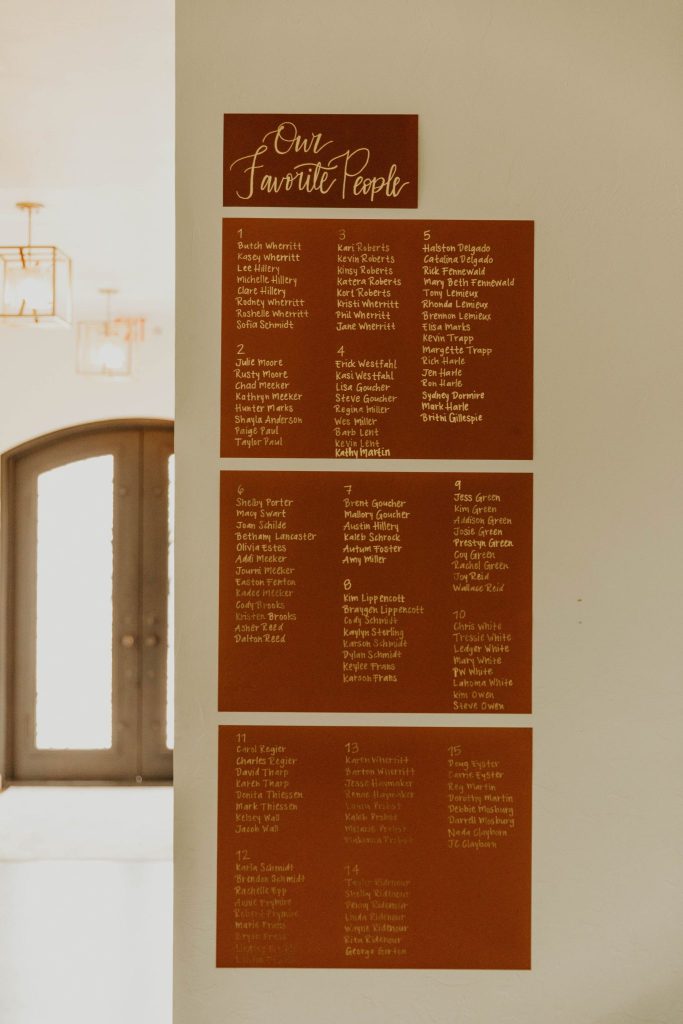 Our
Favorite People
1
Butch Wherritt
Kasey Wherritt
Lee Hillery
Michelle Hillery
Clare Hillery
Rodney Wherritt
Roshelle Wherritt
Sofia Schmidt
2
Julie Moore
Rusty Moore
Chad Meeker
Kathryn Meeker
Hunter Marks
Shayla Anderson
Paige Paul
Taylor Paul
3
Kari Roberts
Kevin Roberts
Kinsy Roberts
Katera Roberts
Kort Roberts
Kristi Wherritt
Phil Wherritt
Jane Wherritt
4
Erick Westfahl
Kasi Westfahl
Lisa Goucher
Steve Goucher
Regina Miller
Wes Miller
Barb Lent
Kevin Lent
Kathy Martin
5
Halston Delgado
Catalina Delgado
Rick Fennewald
Mary Beth Fennewald
Tony Lemieux
Rhonda Lemieux
Brennon Lemieux
Elisa Marks
Kevin Trapp
Margette Trapp
Rich Harle
Jen Harle
Ron Harle
Sydney Dormire
Mark Harle
Britni Gillespie
6
Shelby Porter
Macy Swart
Joan Schilde
Bethany Lancaster
Olivia Estes
Addi Meeker
Journi Meeker
Easton Fenton
Kadee Meeker
Cody Brooks
Kristen Brooks
Asher Reed
Dalton Reed
7
Brent Goucher
Mallory Goucher
Austin Hillery
Kaleb Schrock
Autum Foster
Amy Miller
8
Kim Lippencott
Braygen Lippencott
Cody Schmidt
Kaylyn Sterling
Karson Schmidt
Dylan Schmidt
Keylee Frans
Karson Frans
9
Jess Green
Kim Green
Addison Green
Josie Green
Prestyn Green
Coy Green
Rachel Green
Joy Reid
Wallace Reid
10
Chris White
Tressie White
Ledger White
Mary White
PW White
Lahoma White
Kim Owen
Steve Owen
11
Carol Regier
Charles Regier
David Tharp
Karen Tharp
Donita Thiessen
Mark Thiessen
Kelsey Wall
Jacob Wall
12
Karla Schmidt
Brendon Schmidt
Rachelle Epp
Prymire
Robert Prymire
Marie Frans
13
Karen Wherritt
Barton Wherritt
Jesse Haymaker
Renae Haymaker
Probst
Kaleb Probst
Melanie Probst
Probst
14
Taylor Ridenour
Shelby Ridenour
Denny Ridenour
Linda Ridenour
Wayne Ridenour
Rita Ridenour
George Gorton
15
Doug Eyster
Carrie Eyster
Reg Martin
Dorothy Martin
Debbie Mosburg
Darrell Mosburg
Nada Clayborn
JC Clayborn